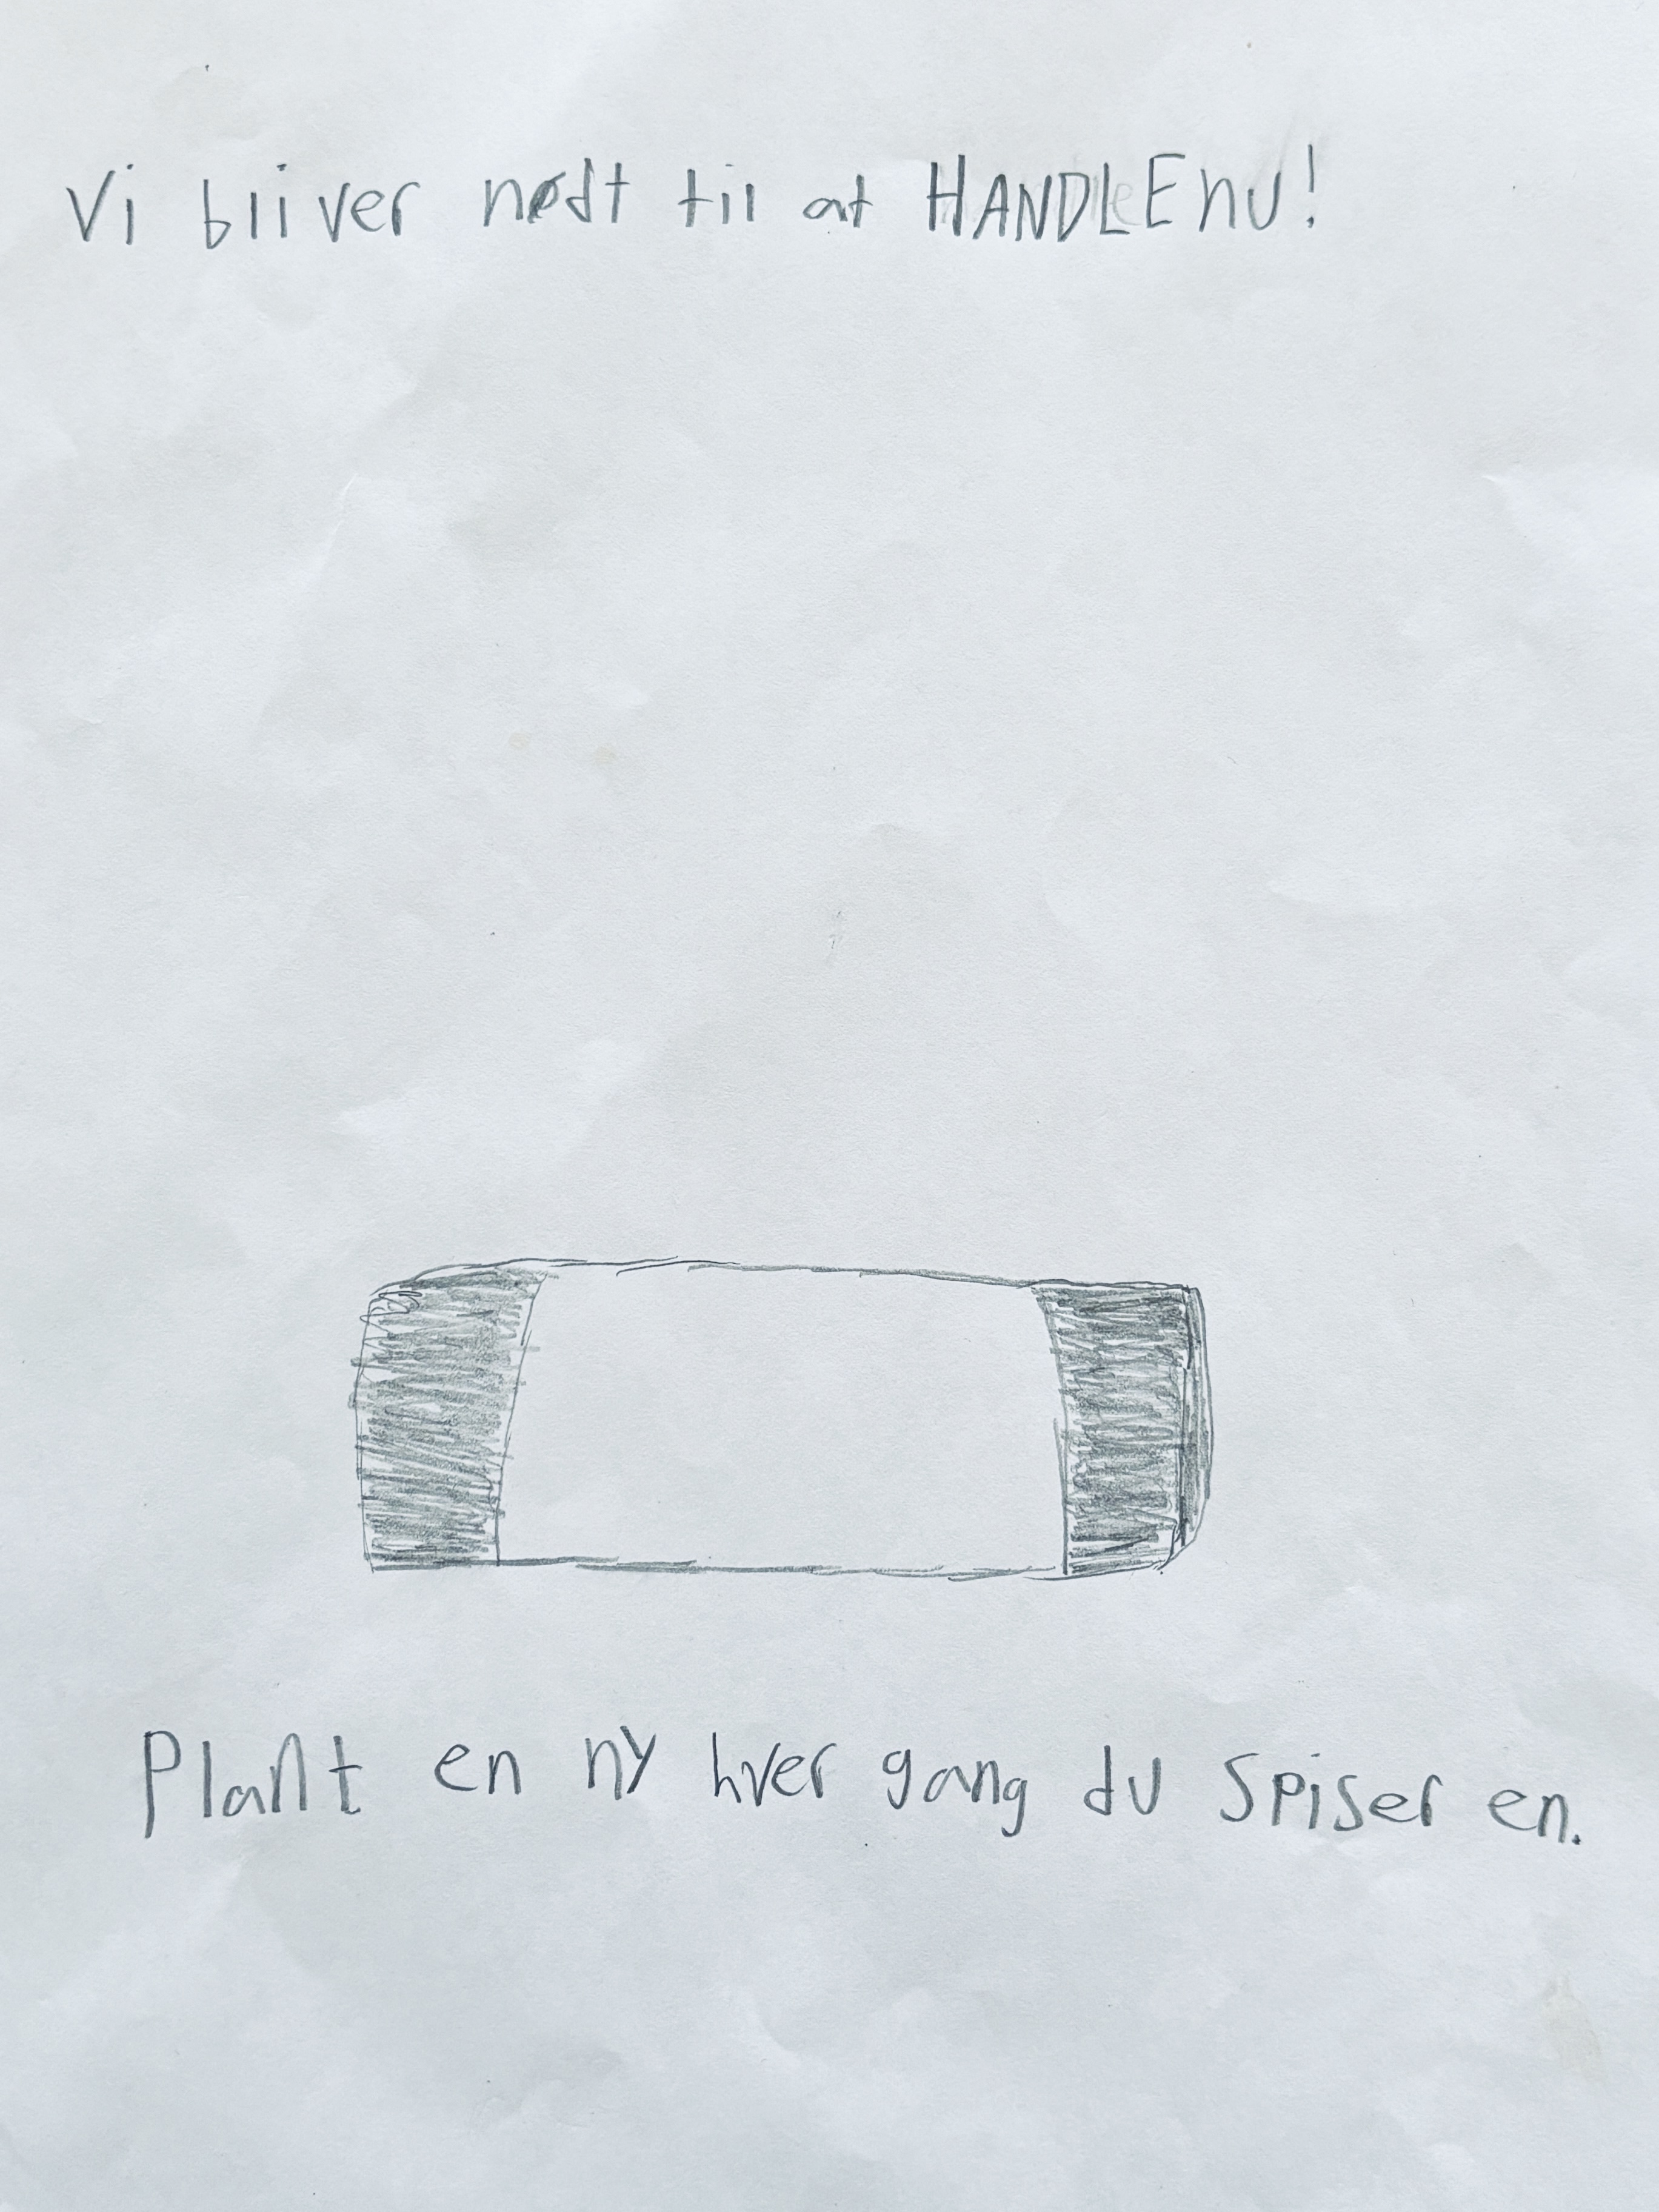 Vi bliiver nødt til at HANDLE nu!
Plant en ny hver gang du spiser en.